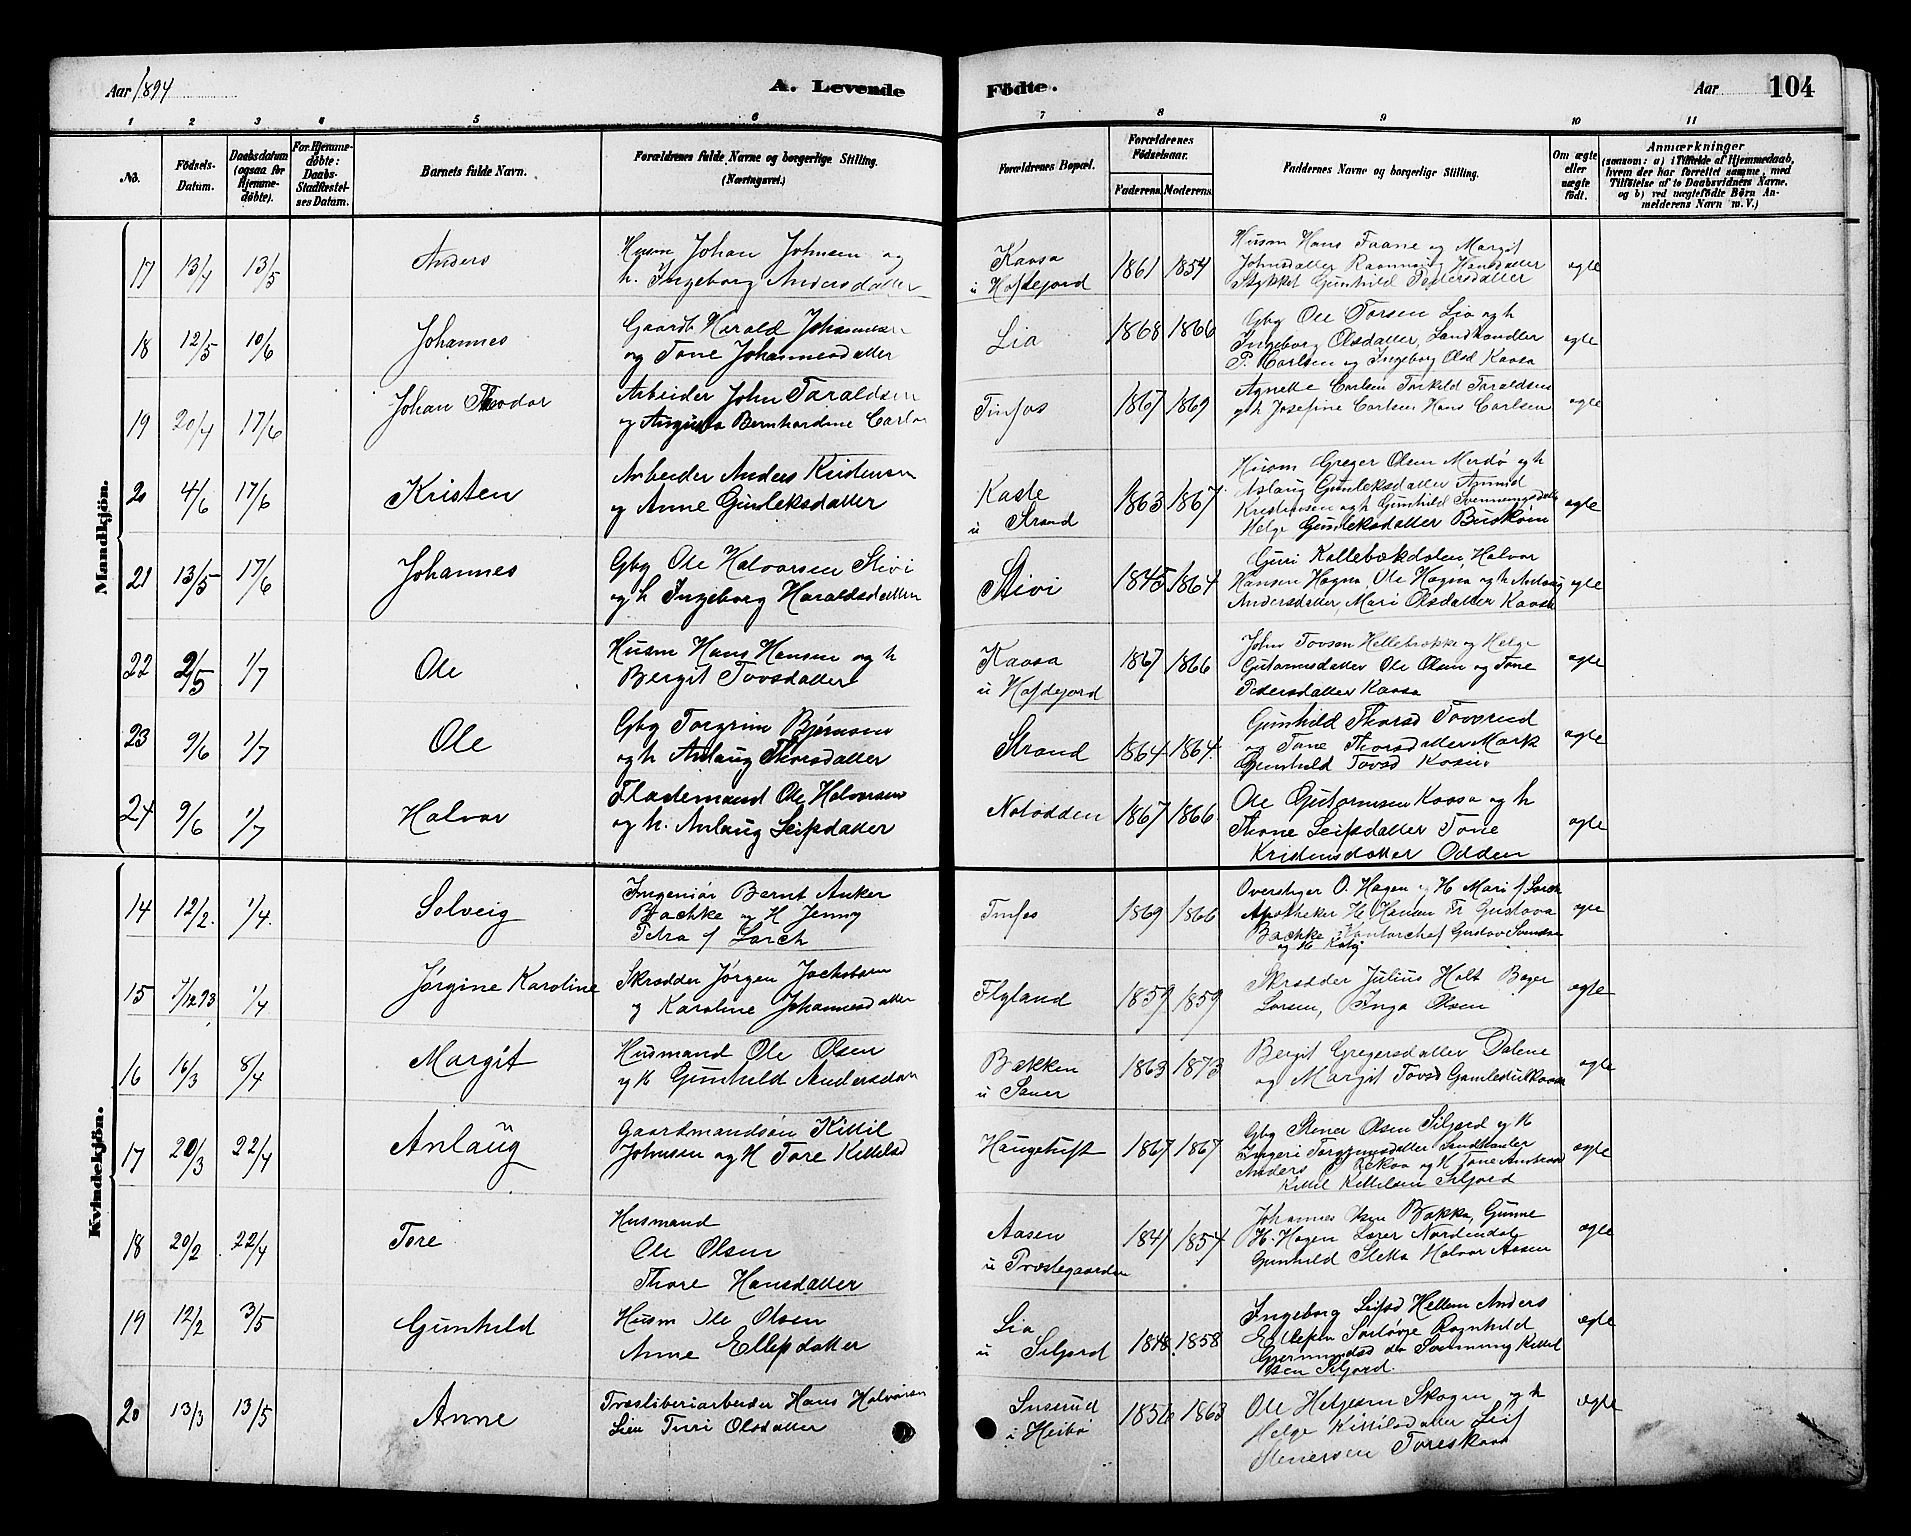 Aar 1894
A. Levende
Födte.
Aar
104
1 2 3 4 5 6 7 8 9 10 11
No.
Födsels-Datum.
Daabsdatum (ogsaa for Hjemme-döbte).
For Hjemme-döbte: Daabs-Stadfæstel-ses Datum.
Barnets fulde Navn.
Forældrenes fulde Navne og borgerlige Stilling. (Næringsvei.)
Forældrenes Bopæl.
Forældrenes Födselsaar.
Faderens. Moderens.
Faddernes Navne og borgerlige Stilling.
Om ægte eller uægte födt.
Anmærkninger
(saasom: a) i Tilfælde af Hjemmedaab, hvem der har forrettet samme, med Tilföielse af to Daabsvidners Navne, og b) ved uægtefödte Börn An-melderens Navn m. V.)
Mandkjön.
17 13/4 13/5 Anders
Husm Johan Johnsen og
h. Ingeborg Andersdatter
Kaasa
u Hofdejord
1861 1854
Husm Hans Faane og Margit
Johnsdatter Hansdatter
Stykket Gunhild Pedersdatter
ægte
18 12/5 10/6 Johannes
Gaardb Herald Johannesen
og Tone Johannesdatter
Lia
1868 1866
Gbg Ole Torsen Lia og h
Ingeborg Olsdatter, Landhandler
P. Carlsen og Ingeborg Olsd Kaasa
ægte
19 20/4 17/6 Johan Theodor
Arbeider John Taraldsen
og Augusta Bernhardine Carls
Tinfos
1867 1869
Agnethe Carlsen Torkild Taraldsen
og h Josefine Carlsen Hans Carlsen
ægte
20 4/6 17/6 Kristen
Arbeider Anders Kristensen
og Anne Gunleksdatter
Kaste
u Strand
1863 1867
Husm Greger Olsen Merdø og h
Aslaug Gunleksdatter Amund
Kristensen og h Gunhild Svenningsdatter
Helge Gunleksdatter Buskøin
ægte
21 13/5 17/6 Johannes
Gbg Ole Halvorsen Stivi
og h Ingeborg Haraldsdatter
Stivi
1845 1864
Guri Kallebækdalen, Halvor
Hansen Hagna, Ole Hagna og h Anlaug
Andersdatter, Mari Olsdatter Kaasa
ægte
22 2/5 1/7 Ole
Husm Hans Hansen og h
Bergit Tovsdatter
Kaasa
u Hofdejord
1867 1866
John Tovsen Hellebække og Helge
Gutormsdatter Ole Olsen og Tone
Pedersdatter Kaasa
ægte
23 9/6 1/7 Ole
Gbg Torgrim Bjørnsen
og h Anlaug Thorsdatter
Strand
1864 1864
Gunhild Thorsd Toverud
og Tone Thorsdatter Mark
Gunhild Tovsd
ægte
24 9/6 1/7 Halvor
Flademand Ole Halvorsen
og h. Anlaug Leifsdatter
Notodden
1867 1866
Ole Gutormsen Kaasa og h
Thone Leifsdatter Tone
Kristensdatter Odden
ægte
Kvindekjön.
14 12/2 1/4 Solveig
Ingeniør Bernt Anker
Bachke og H Jenny
Petra f Lorch
Tinfos
1869 1866
Overstiger O. Hagen og H Mari f Lorch
Apotheker H. Hansen Fr Gustava
Bachke Kontorchef Gustav Svendsen
og H
ægte
15 1/12 93 1/4 Jørgine Karoline
Skrædder Jørgen Jacobsen
og Karoline Johannesdatter
Flyland
1859 1859
Skrædder Julius Holt Bager
Larsen, Inga Olsen
ægte
16 16/3 8/4 Margit
Husmand Ole Olsen
og H Gunhild Andersdatter
Bakken
u Sauer
1863 1873
Bergit Gregersdatter Dalene
og Margit Tovsd Gamlestulkaasa
ægte
17 20/3 22/4 Anlaug
Gaardmandsøn Kittil
Johnsen og H Tore Kittilsd
Haugetuft
1867 1867
Gbg Stener Olsen Siljord og H
Ingeri Torgrimsdatter Landhanler
Anders og H Tone
Kittil Kittilsen Siljord
ægte
18 20/2 22/4 Tore
Husmand
Ole Olsen
Thore Hansdatter
Aasen
u Præstegaarden
1847 1854
Johannes Olsen Bakka, Gunne
H. Hagen Lærer Nordendale
Gunhild Sletta Halvor Aasen
ægte
19 12/2 3/5 Gunhild
Husm Ole Olsen
Anne Ellefsdatter
Lia
u Siljord
1848 1858
Ingeborg Leifsd Hellem Anders
Ellefsen Ragnhild
Germundsd do Svenning Kittil
sen Siljord.
ægte
20 13/3 13/5 Anne
Træsliberiarbeider Hans Halvorsen
Lien Turi Olsdatter
Inserud
i Heibø
1856 1863
Ole Helgesen Skogen og h
Helge Kittilsdatter Leif
Stenersen Toreskaas
ægte